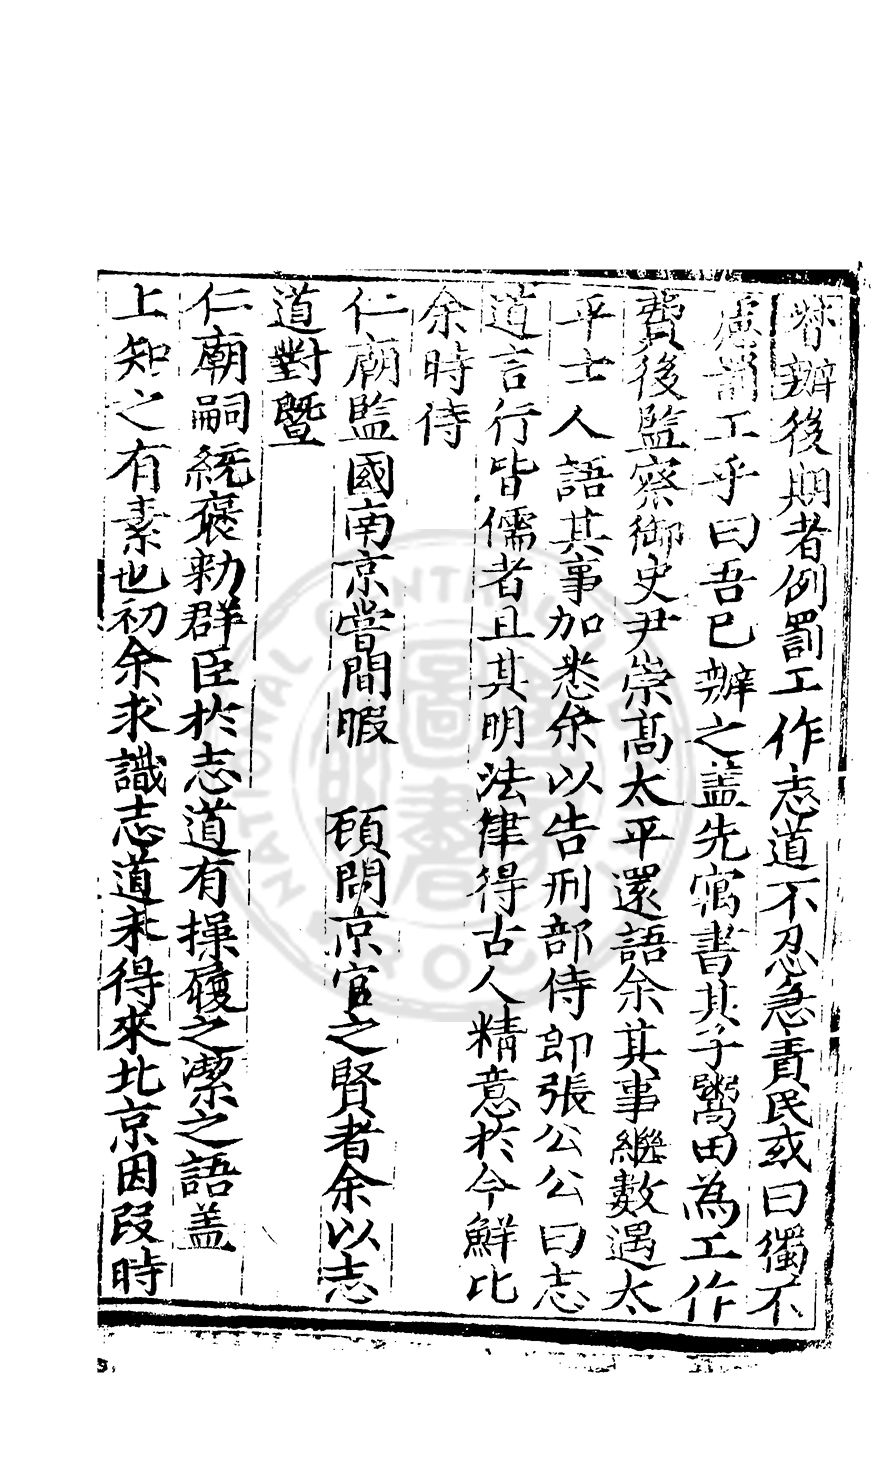 督辦後期者例罰工作志道不忍急責民或曰獨不
慮罰工乎曰吾已辦之盖先寓書其子鬻田為工作
費後監察御史尹崇髙太平還語余其事繼數遇太
平士人語其事加悉余以告刑部侍郎張公公曰志
道言行皆儒者且其明法律得古人精意於今鮮比
余時侍
仁廟監國南京甞間暇 顧問京官之賢者余以志
道對暨
仁廟嗣統褒勑群臣於志道有操履之潔之語盖
上知之有素也初余求識志道未得來北京因叚時
NATIONAL CENTRAL